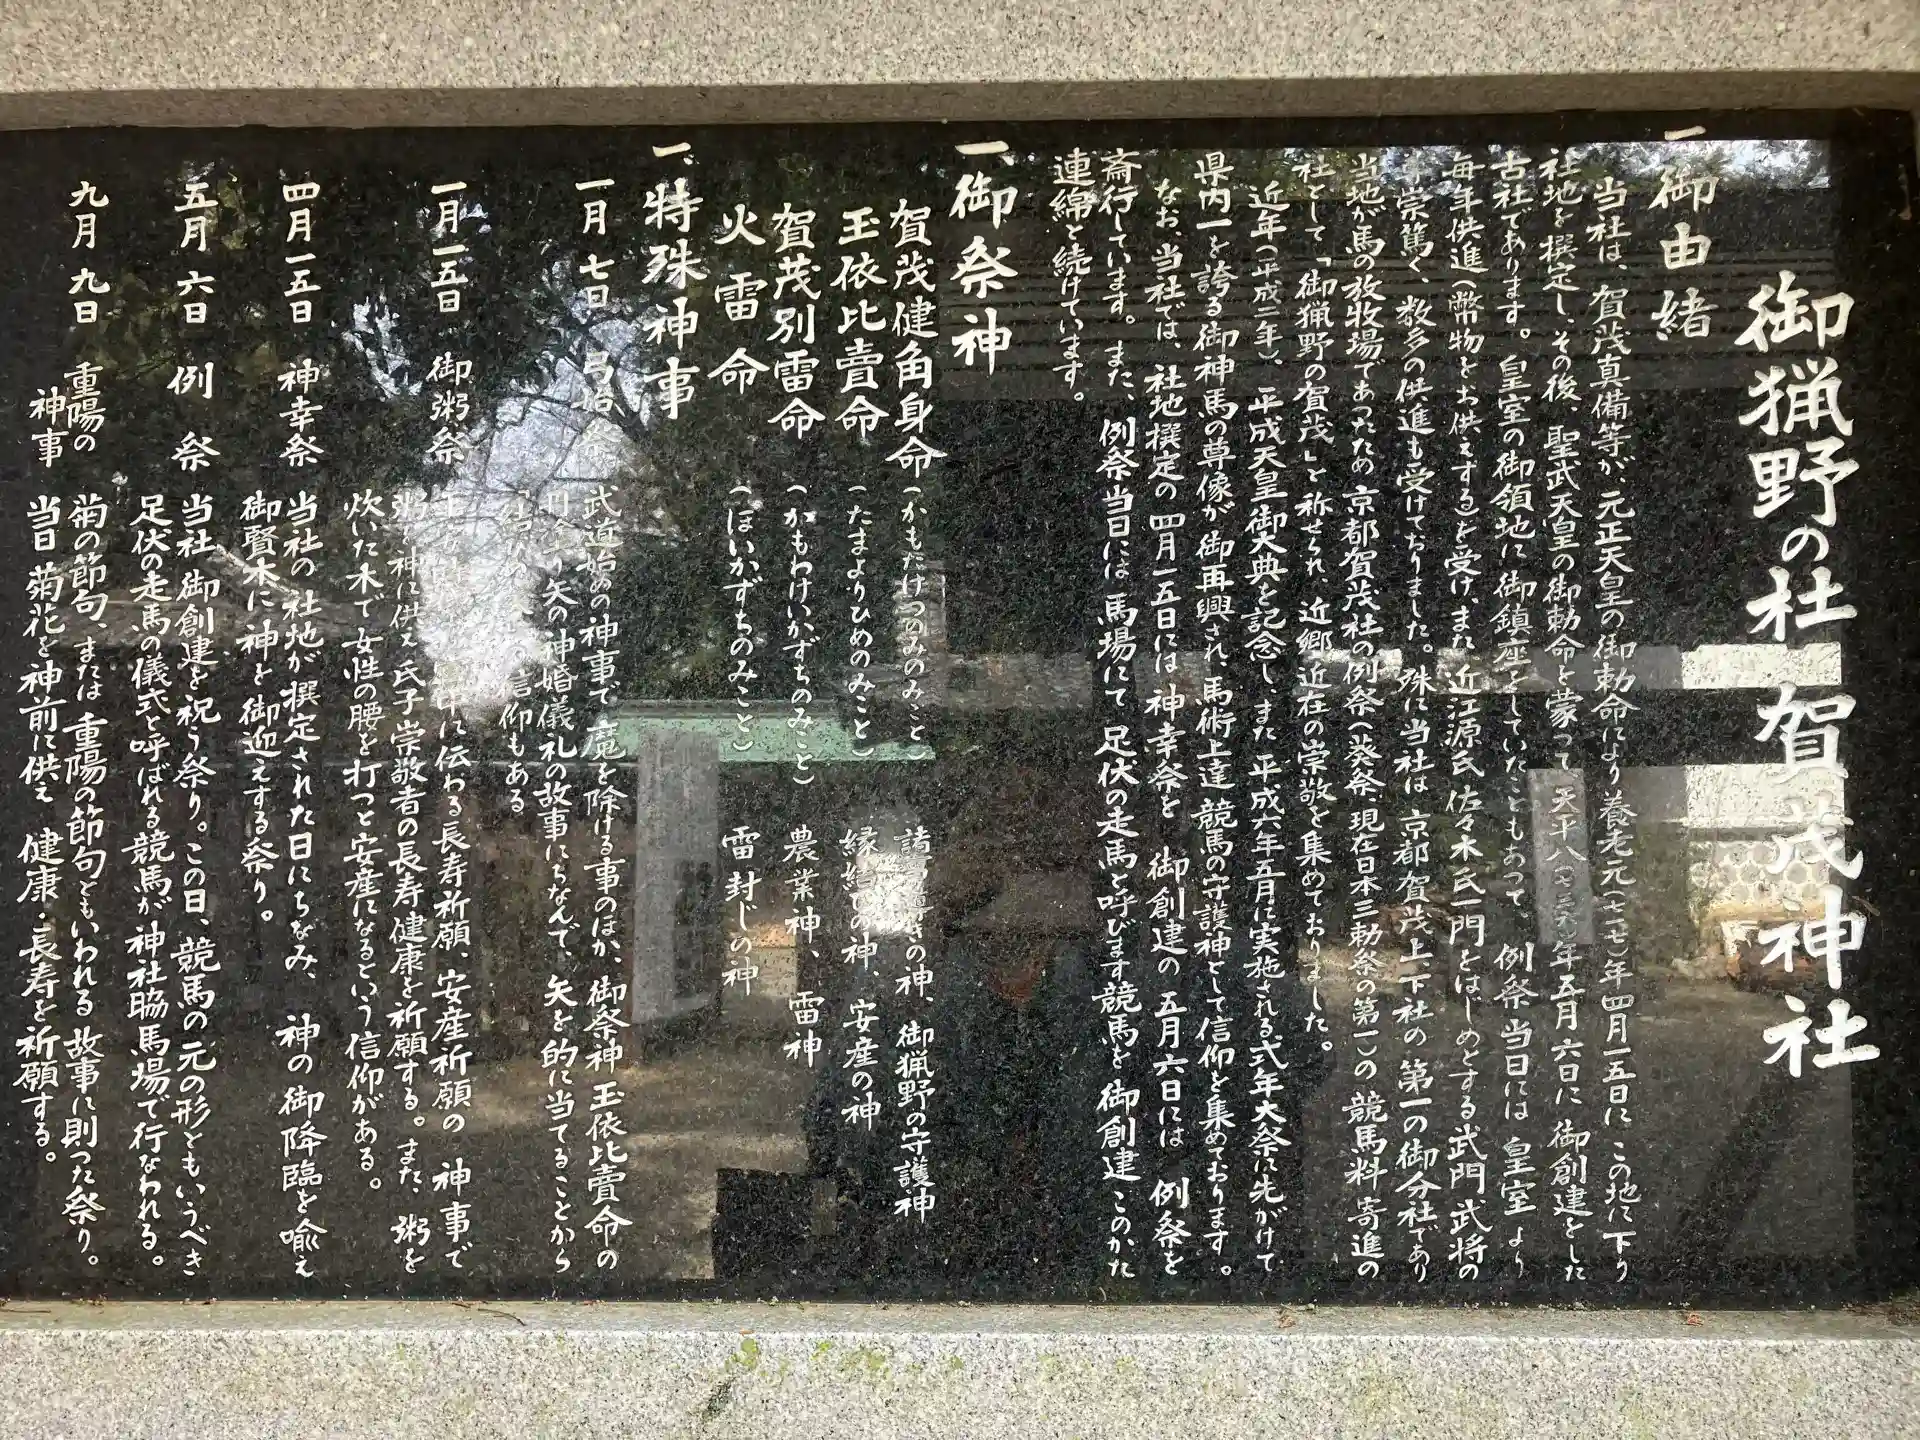 御猟野の杜 賀茂神社
一、御由緒
当社は、賀茂真備等が、元正天皇の御勅命により養老元(七一七)年四月一五日に この地に下り
社地を撰定し、その後、聖武天皇の御勅命を蒙って天平八(七三六)年五月六日に 御創建をした
古社であります。皇室の御領地に御鎮座をしていたこともあって、例祭当日には 皇室より
毎年供進(幣物をお供えする)を受け、また近江源氏佐々木氏一門をはじめとする武門 武将の
崇篤く、数多の供進も受けておりました。殊に当社は 京都賀茂上下社の第一の御分社であり
当地が馬の放牧場であったため 京都賀茂社の例祭(葵祭、現在日本三勅祭の第一)の 競馬料 寄進の
社として「御猟野の賀茂」と称せられ、近郷近在の崇敬を集めておりました。
近年(平成二年)、平成天皇御大典を記念し、また平成六年五月に実施される式年大祭に先がけて
県内一を誇る御神馬の尊像が御再興され、馬術上達 競馬の守護神として信仰を集めております。
なお、当社では、社地撰定の四月一五日には 神幸祭を 御創建の五月六日には 例祭を
斎行しています。また、例祭当日には 馬場にて 足伏の走馬と呼びます競馬を 御創建 このかた
連綿と続けています。
一、御祭神
賀茂健角身命(かもたけつのみのみこと) 諸 導きの神、御猟野の守護神
玉依比賣命(たまよりひめのみこと) 縁結びの神、安産の神
賀茂別雷命(かもわけいかずちのみこと) 農業神、雷神
火雷命(ほいかずちのみこと) 雷封じの神
一、特殊神事
一月 七日 弓始祭 武道始めの神事で 魔を除ける事のほか、御祭神 玉依比賣命の
矢の神婚儀礼の故事にちなんで、矢を的に当てることから
信仰もある
一月一五日 御粥祭 に伝わる長寿祈願、安産祈願の 神事で
粥を神に供え 氏子崇敬者の長寿健康を祈願する。また、粥を
炊いた木で 女性の腰を打つと安産になるという信仰がある。
四月一五日 神幸祭 当社の社地が撰定された日にちなみ、神の御降臨を喩え
御賢木に神を御迎えする祭り。
五月 六日 例祭 当社 御創建を祝う祭り。この日、競馬の元の形ともいうべき
足伏の走馬の儀式と呼ばれる競馬が神社脇馬場で行なわれる。
九月 九日 重陽の神事 菊の節句、または重陽の節句ともいわれる 故事に則った祭り。
当日 菊花を神前に供え 健康・長寿を祈願する。